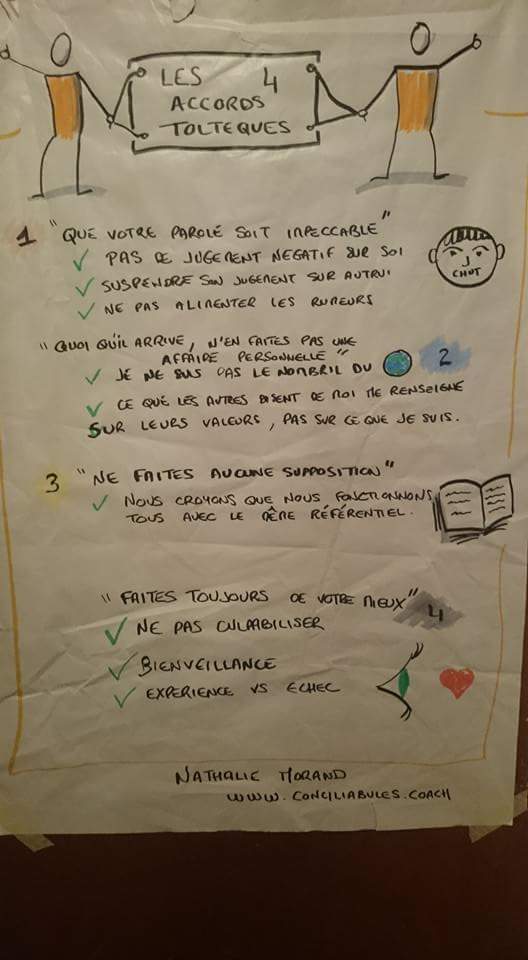 LES 4
ACCORDS
TOLTEQUES
1 "QUE VOTRE PAROLE SOIT IMPECCABLE"
✓ PAS DE JUGEMENT NEGATIF SUR SOI
✓ SUSPENDRE SON JUGEMENT SUR AUTRUI
✓ NE PAS ALIMENTER LES RUMEURS
CHUT
"QUOI QU'IL ARRIVE, N'EN FAITES PAS UNE
AFFAIRE PERSONNELLE" 2
✓ JE NE SUIS PAS LE NOMBRIL DU
✓ CE QUE LES AUTRES DISENT DE MOI ME RENSEIGNE
SUR LEURS VALEURS, PAS SUR CE QUE JE SUIS.
3 "NE FAITES AUCUNE SUPPOSITION"
✓ NOUS CROYONS QUE NOUS FONCTIONNONS
TOUS AVEC LE MÊME RÉFÉRENTIEL.
"FAITES TOUJOURS DE VOTRE MIEUX" 4
✓ NE PAS CULPABILISER
✓ BIENVEILLANCE
✓ EXPERIENCE VS ECHEC
NATHALIE MORAND
WWW.CONCILIABULES.COACH